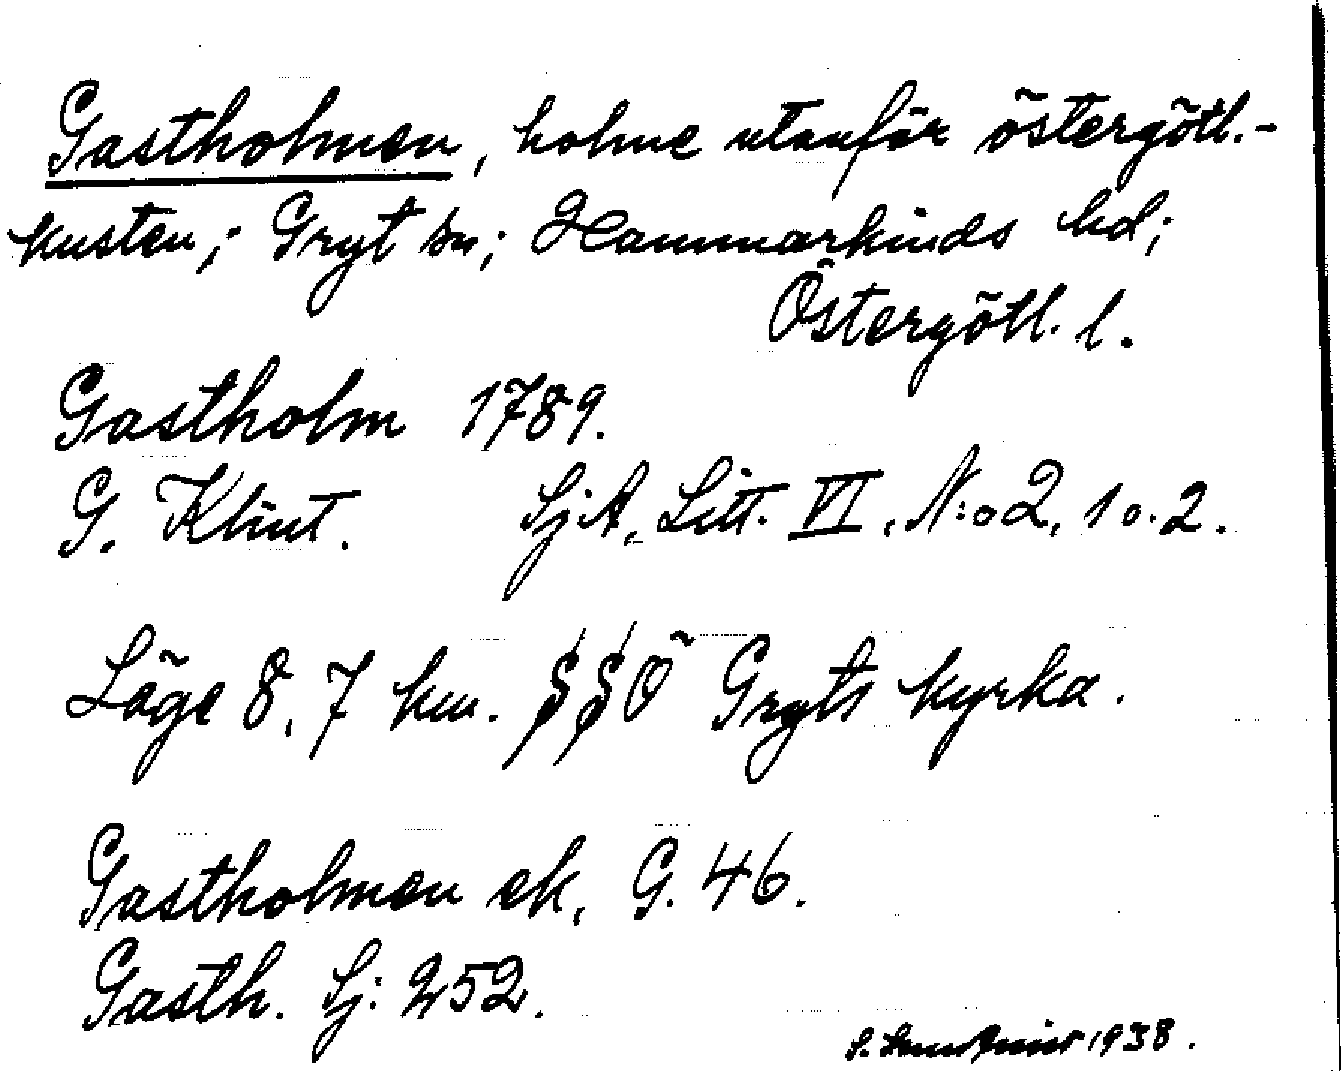 Gastholmen, holme utanför östergötl.-
kusten; Gryt sn; Hammarkinds hd;
Östergötl. l.
Gastholm 1789.
G. Klint. SjA, Litt. VI, N:o 2, 1 o. 2.
Läge 8,7 km. SSÖ Gryts kyrka.
Gastholmen ek. G. 46.
Gasth. Sj: 252.
S. 1938.